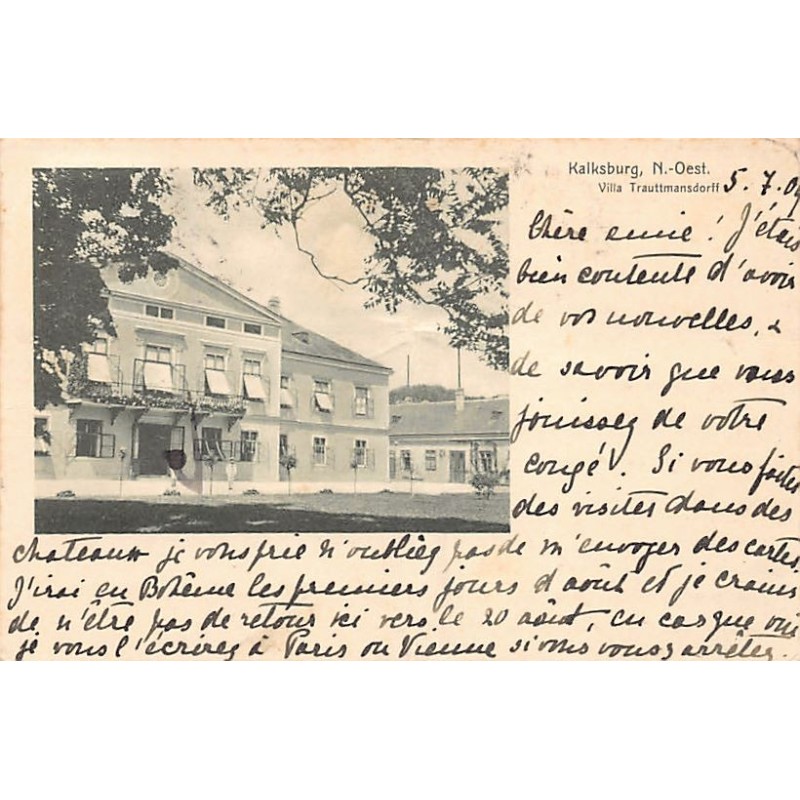 Kalksburg, N.-Oest.
Villa Trauttmansdorff
5. 7. 0
Chère amie! J'étais
bien contente d'avoir
de vos nouvelles, &
de savoir que vous
jouissez de votre
congé. Si vous faites
des visites dans des
chateaux je vous prie n'oubliez pas de m'envoyer des cartes.
J'irai en Bohême les premiers jours d'août et je crains
de n'être pas de retour ici vers le 20 août, en cas que oui
je vous l'écrirez à Paris ou Vienne si vous vous y arrêtez.